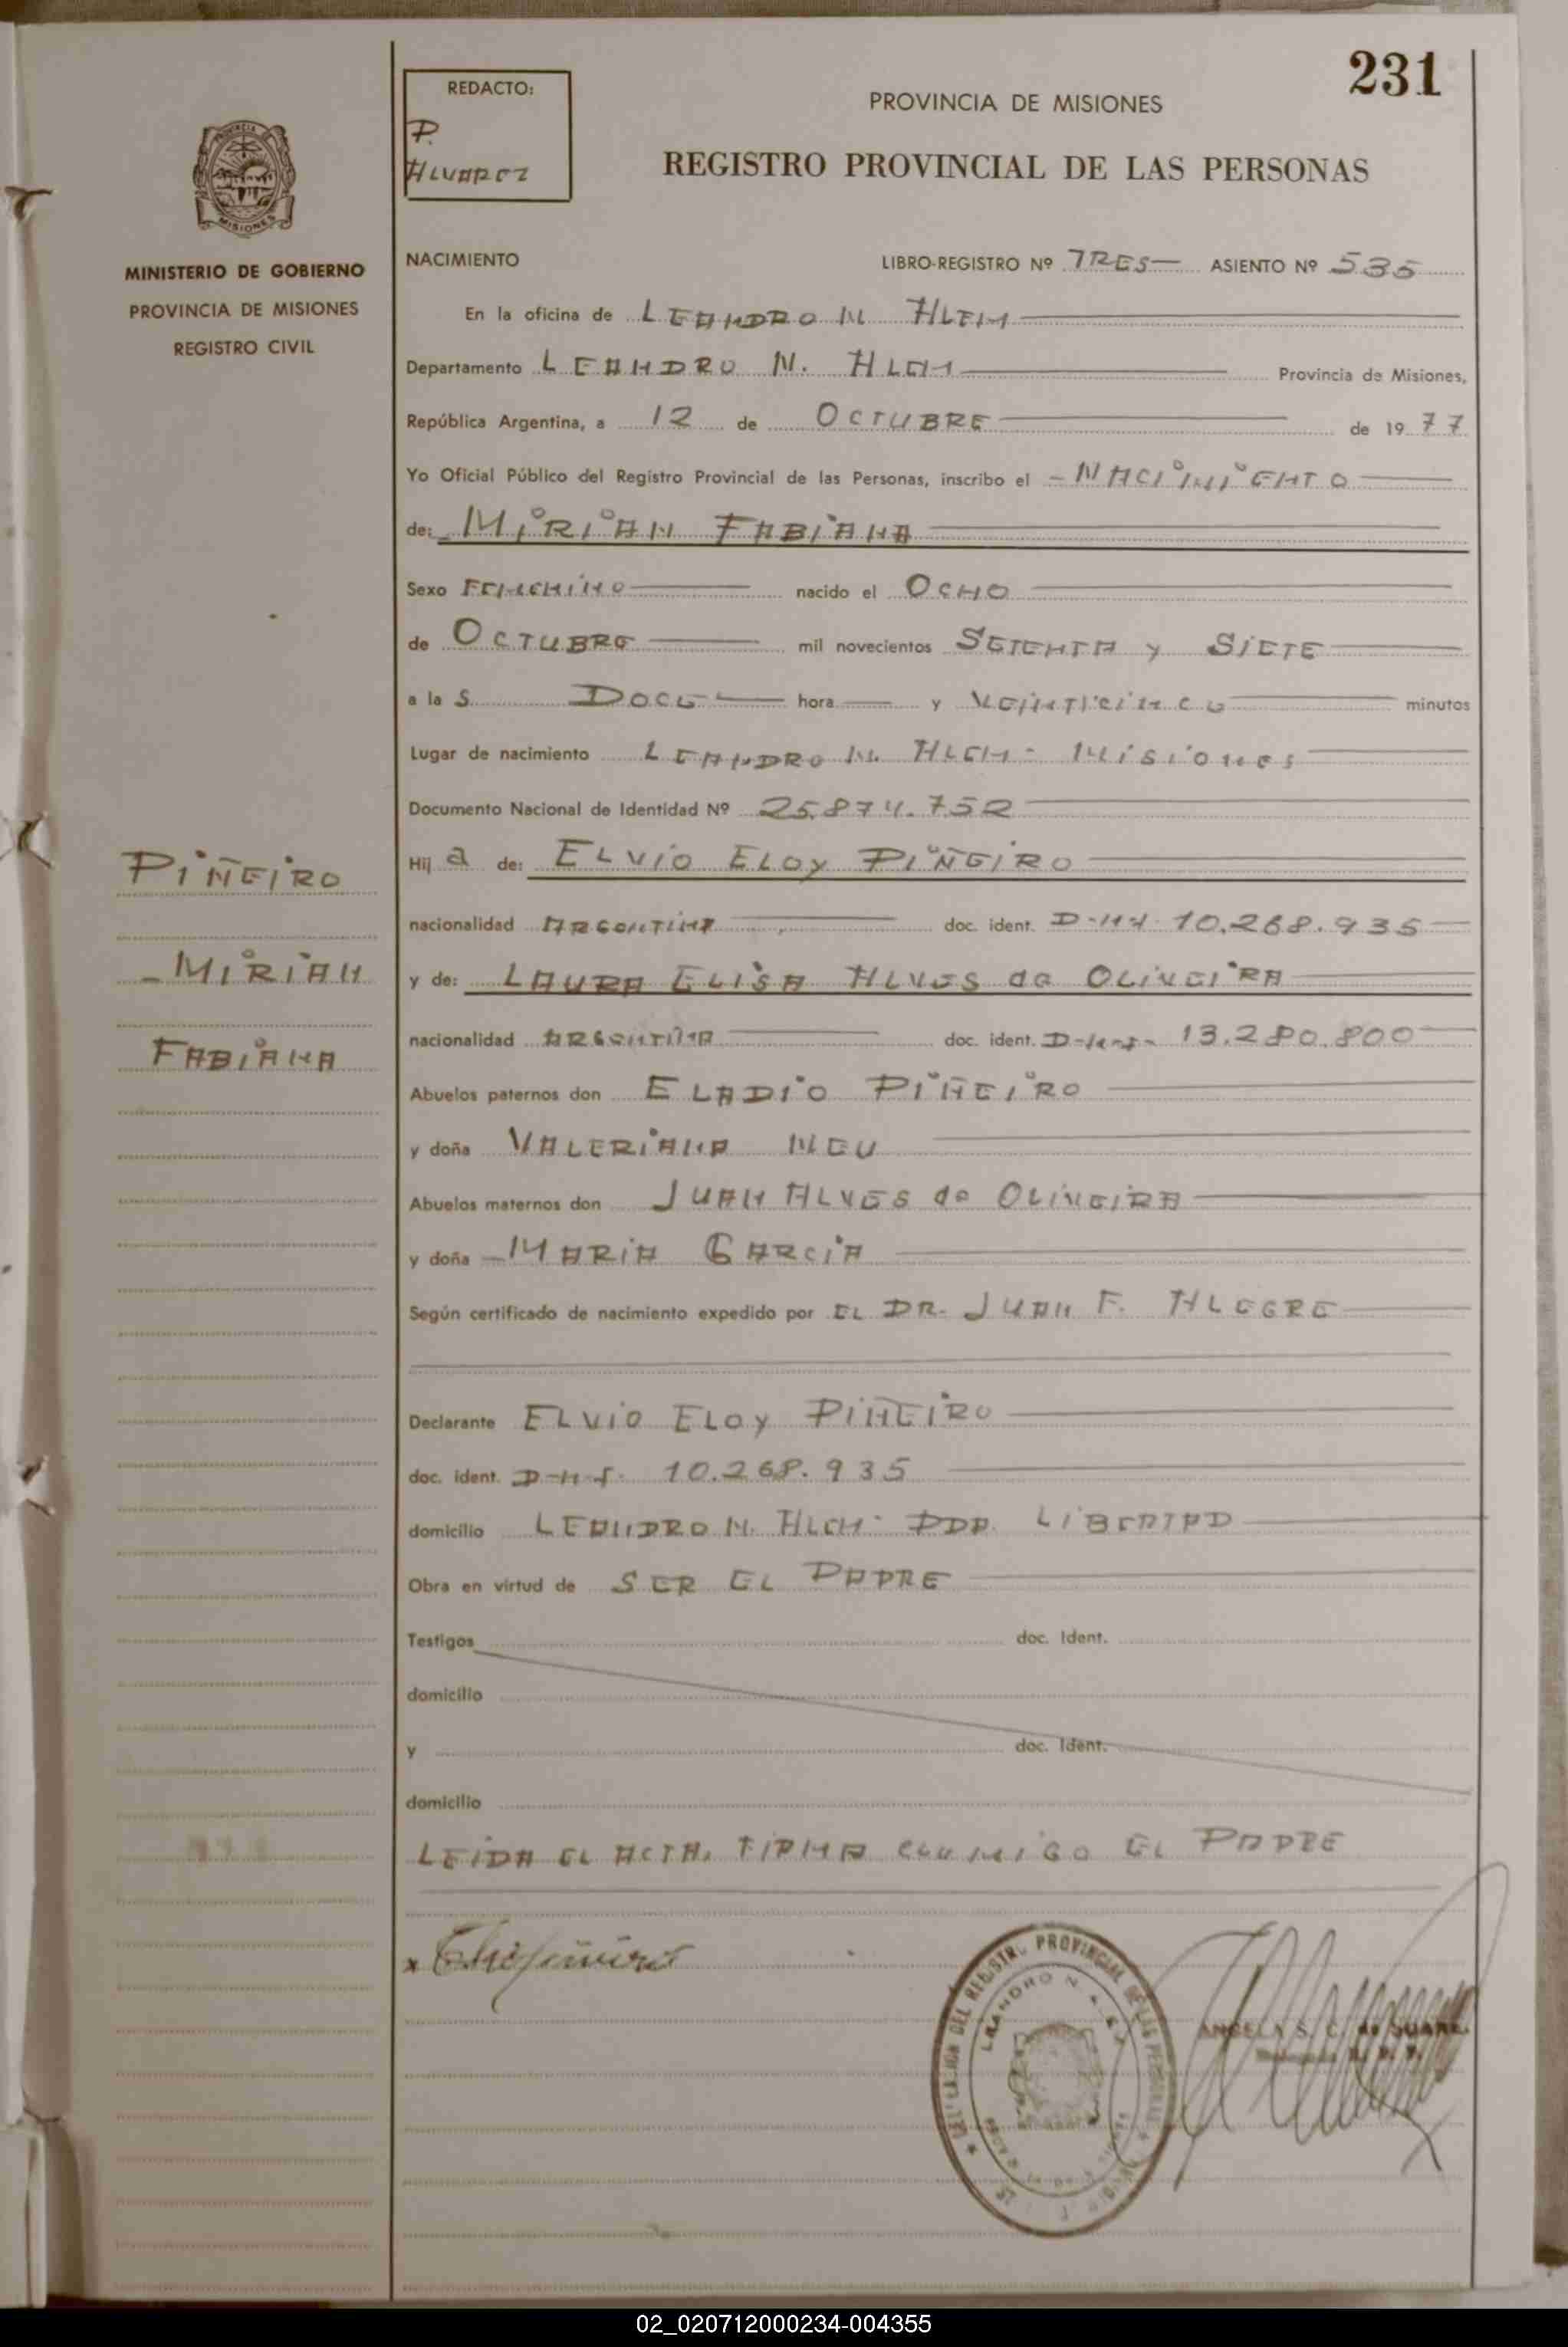 231
REDACTO:
P.
ALVAREZ
PROVINCIA DE MISIONES
REGISTRO PROVINCIAL DE LAS PERSONAS
MISIONES
MINISTERIO DE GOBIERNO
PROVINCIA DE MISIONES
REGISTRO CIVIL
NACIMIENTO LIBRO-REGISTRO Nº TRES ASIENTO Nº 535
En la oficina de LEANDRO N ALEM
Departamento LEANDRO N. ALEM Provincia de Misiones,
República Argentina, a 12 de OCTUBRE de 1977
Yo Oficial Público del Registro Provincial de las Personas, inscribo el NACIMIENTO
de: MIRIAN FABIANA
Sexo FEMENINO nacido el OCHO
de OCTUBRE mil novecientos SETENTA y SIETE
a las DOCE hora y VEINTICINCO minutos
Lugar de nacimiento LEANDRO N. ALEM - MISIONES
Documento Nacional de Identidad Nº 25.874.752
Hija de: ELVIO ELOY PIÑEIRO
nacionalidad ARGENTINA doc. ident. D-N-I 10.268.935
y de: LAURA ELISA ALVES de OLIVEIRA
nacionalidad ARGENTINA doc. ident. D-N-I- 13.280.800
Abuelos paternos don ELADIO PIÑEIRO
y doña VALERIANA NEU
Abuelos maternos don JUAN ALVES de OLIVEIRA
y doña MARIA GARCIA
Según certificado de nacimiento expedido por EL DR. JUAN F. ALEGRE
Declarante ELVIO ELOY PIÑEIRO
doc. ident. D-N-I. 10.268.935
domicilio LEANDRO N. ALEM- PDA. LIBERTAD
Obra en virtud de SER EL PADRE
Testigos doc. Ident.
domicilio
y doc. Ident.
domicilio
LEIDA EL ACTA, FIRMA CONMIGO EL PADRE
PIÑEIRO
MIRIAN
FABIANA
DEL REGISTRO PROVINCIAL DE LAS PERSONAS
LEANDRO N. ALEM
ANGELA S. C. de SUAREZ
02_020712000234-004355